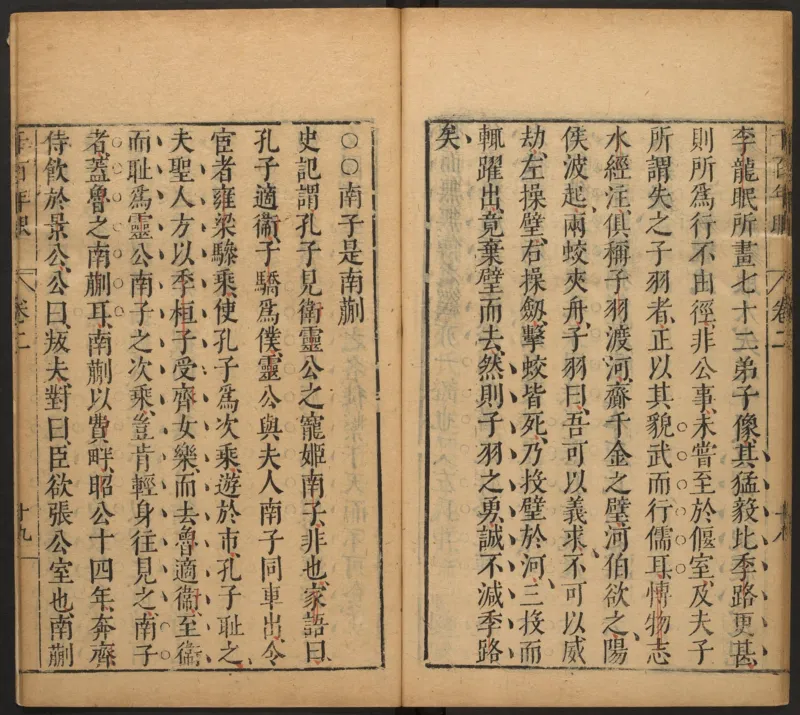 千百年眼 卷二
李龍眠所畫七十二弟子像其猛毅比季路更甚
則所爲行不由徑非公事未嘗至於偃室及夫子
所謂失之子羽者正以其貌武而行儒耳博物志
水經注俱稱子羽渡河齎千金之璧河伯欲之陽
侯波起兩蛟夾舟子羽曰吾可以義求不可以威
劫左操璧右操劔擊蛟皆死乃投璧於河三投而
輒躍出竟棄璧而去然則子羽之勇誠不減季路
矣
○○南子是南蒯
史記謂孔子見衛靈公之寵姬南子非也家語曰
孔子適衞子驕爲僕靈公與夫人南子同車出令
宦者雍梁驂乘使孔子爲次乘遊於市孔子耻之
夫聖人方以季桓子受齊女樂而去魯適衞至衞
而耻爲靈公南子之次乘豈肯輕身往見之南子
者蓋魯之南蒯耳南蒯以費畔昭公十四年奔齊
侍飲於景公公曰叛夫對曰臣欲張公室也南蒯
千百年眼 卷二 十九